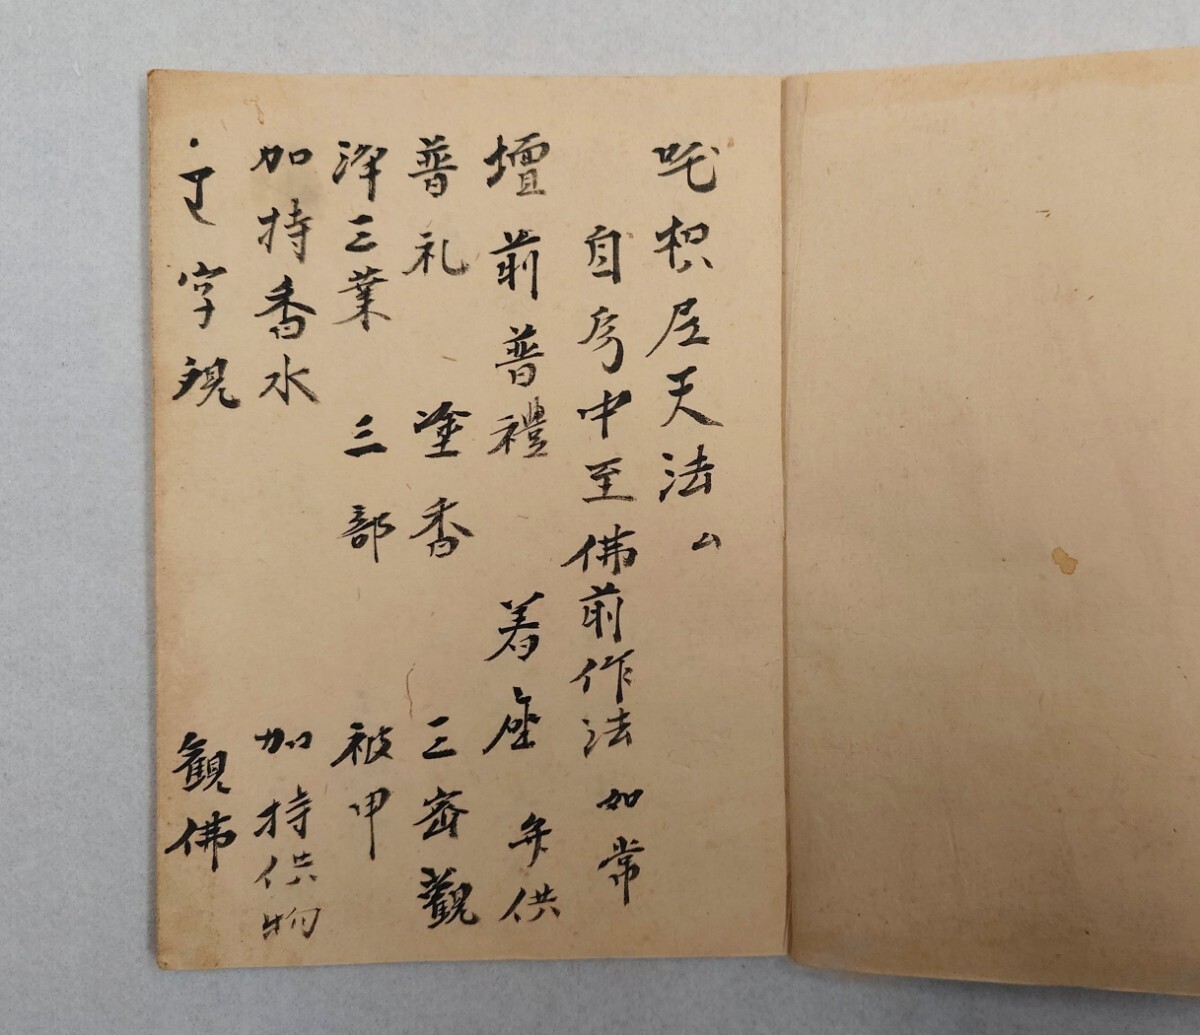 吒枳尼天法ム
自房中至佛前作法如常
壇前普禮 着座 弁供
普礼 塗香 三密觀
浄三業 三部 被甲
加持香水 加持供物
字覌 観佛